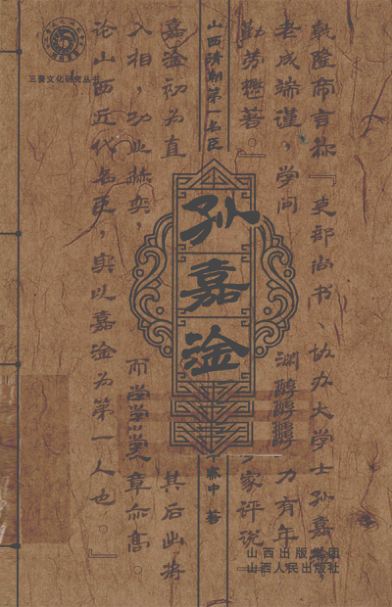 三晋文化研究丛书
乾隆帝言称『吏部尚书、协办大学士孙嘉
老成端谨,学问渊醇醇醇力有年
勤劳懋著。』家评说『
山西清朝第一名臣
孙嘉淦
家中 著
嘉淦初为直其后出将
入相,功业赫奕,而学学章亦高。
论山西近代名臣,实以嘉淦为第一人也。』
山西出版集团
山西人民出版社